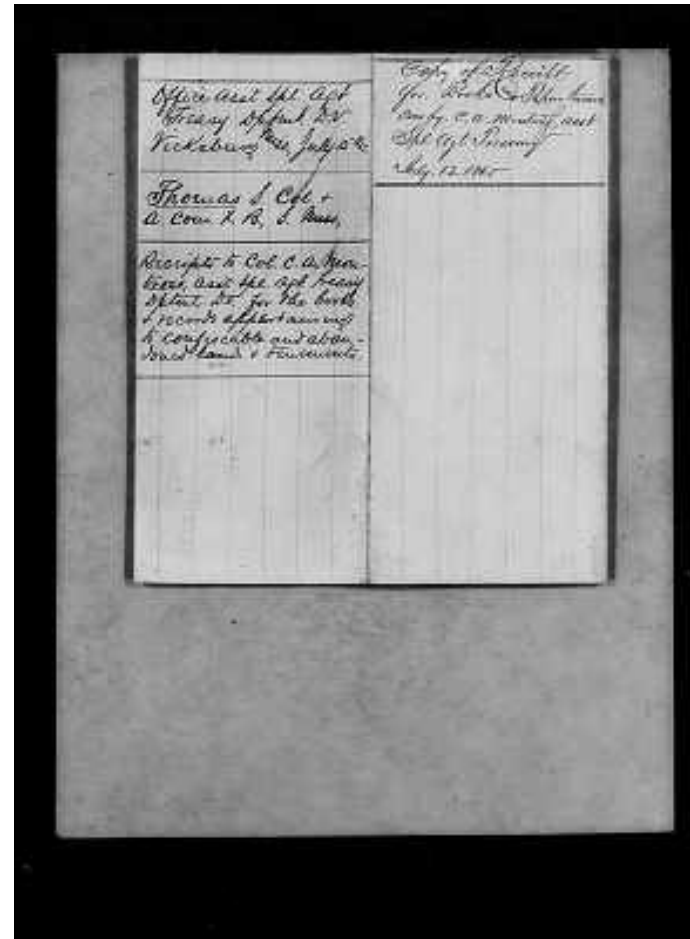 Office Asst Spl. Agt
Treasy Dptmt, DV
Vicksburg Miss, July
Thomas S. Col +
A Com X B, S. Miss,
Receipts to Col. C. A. Mon-
trose, Asst Spl Agt Treasy
Dptmt DV for the books
& records appertaining
to confiscable and aban-
doned lands & tenements.
Copy of Receipt
for Books
by C. A. Montrose, Asst
Spl Agt Treasury
July 12 1865